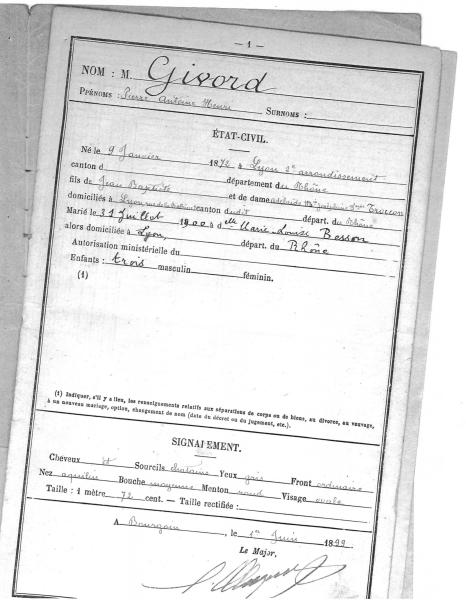 — 1 —
NOM : M. Givord
PRÉNOMS : Pierre Antoine Henri SURNOMS :
ÉTAT-CIVIL.
Né le 9 Janvier 1872 à Lyon 2e arrondissement
canton d département du Rhône
fils de Jean Baptiste et de dame Trucon
domiciliés à Lyon canton dudit départ. du Rhône
Marié le 31 Juillet 1900 à d Melle Marie Louise Besson
alors domiciliée à Lyon départ. du Rhône
Autorisation ministérielle du
Enfants : trois masculin féminin.
(1)
(1) Indiquer, s'il y a lieu, les renseignements relatifs aux séparations de corps ou de biens, au divorce, au veuvage,
à un nouveau mariage, option, changement de nom (date du décret ou du jugement, etc.).
SIGNALEMENT.
Cheveux et Sourcils chatains Yeux gris Front ordinaire
Nez aquilin Bouche moyenne Menton rond Visage ovale
Taille : 1 mètre 72 cent. — Taille rectifiée :
A Bourgoin, le 1er Juin 1899
Le Major,